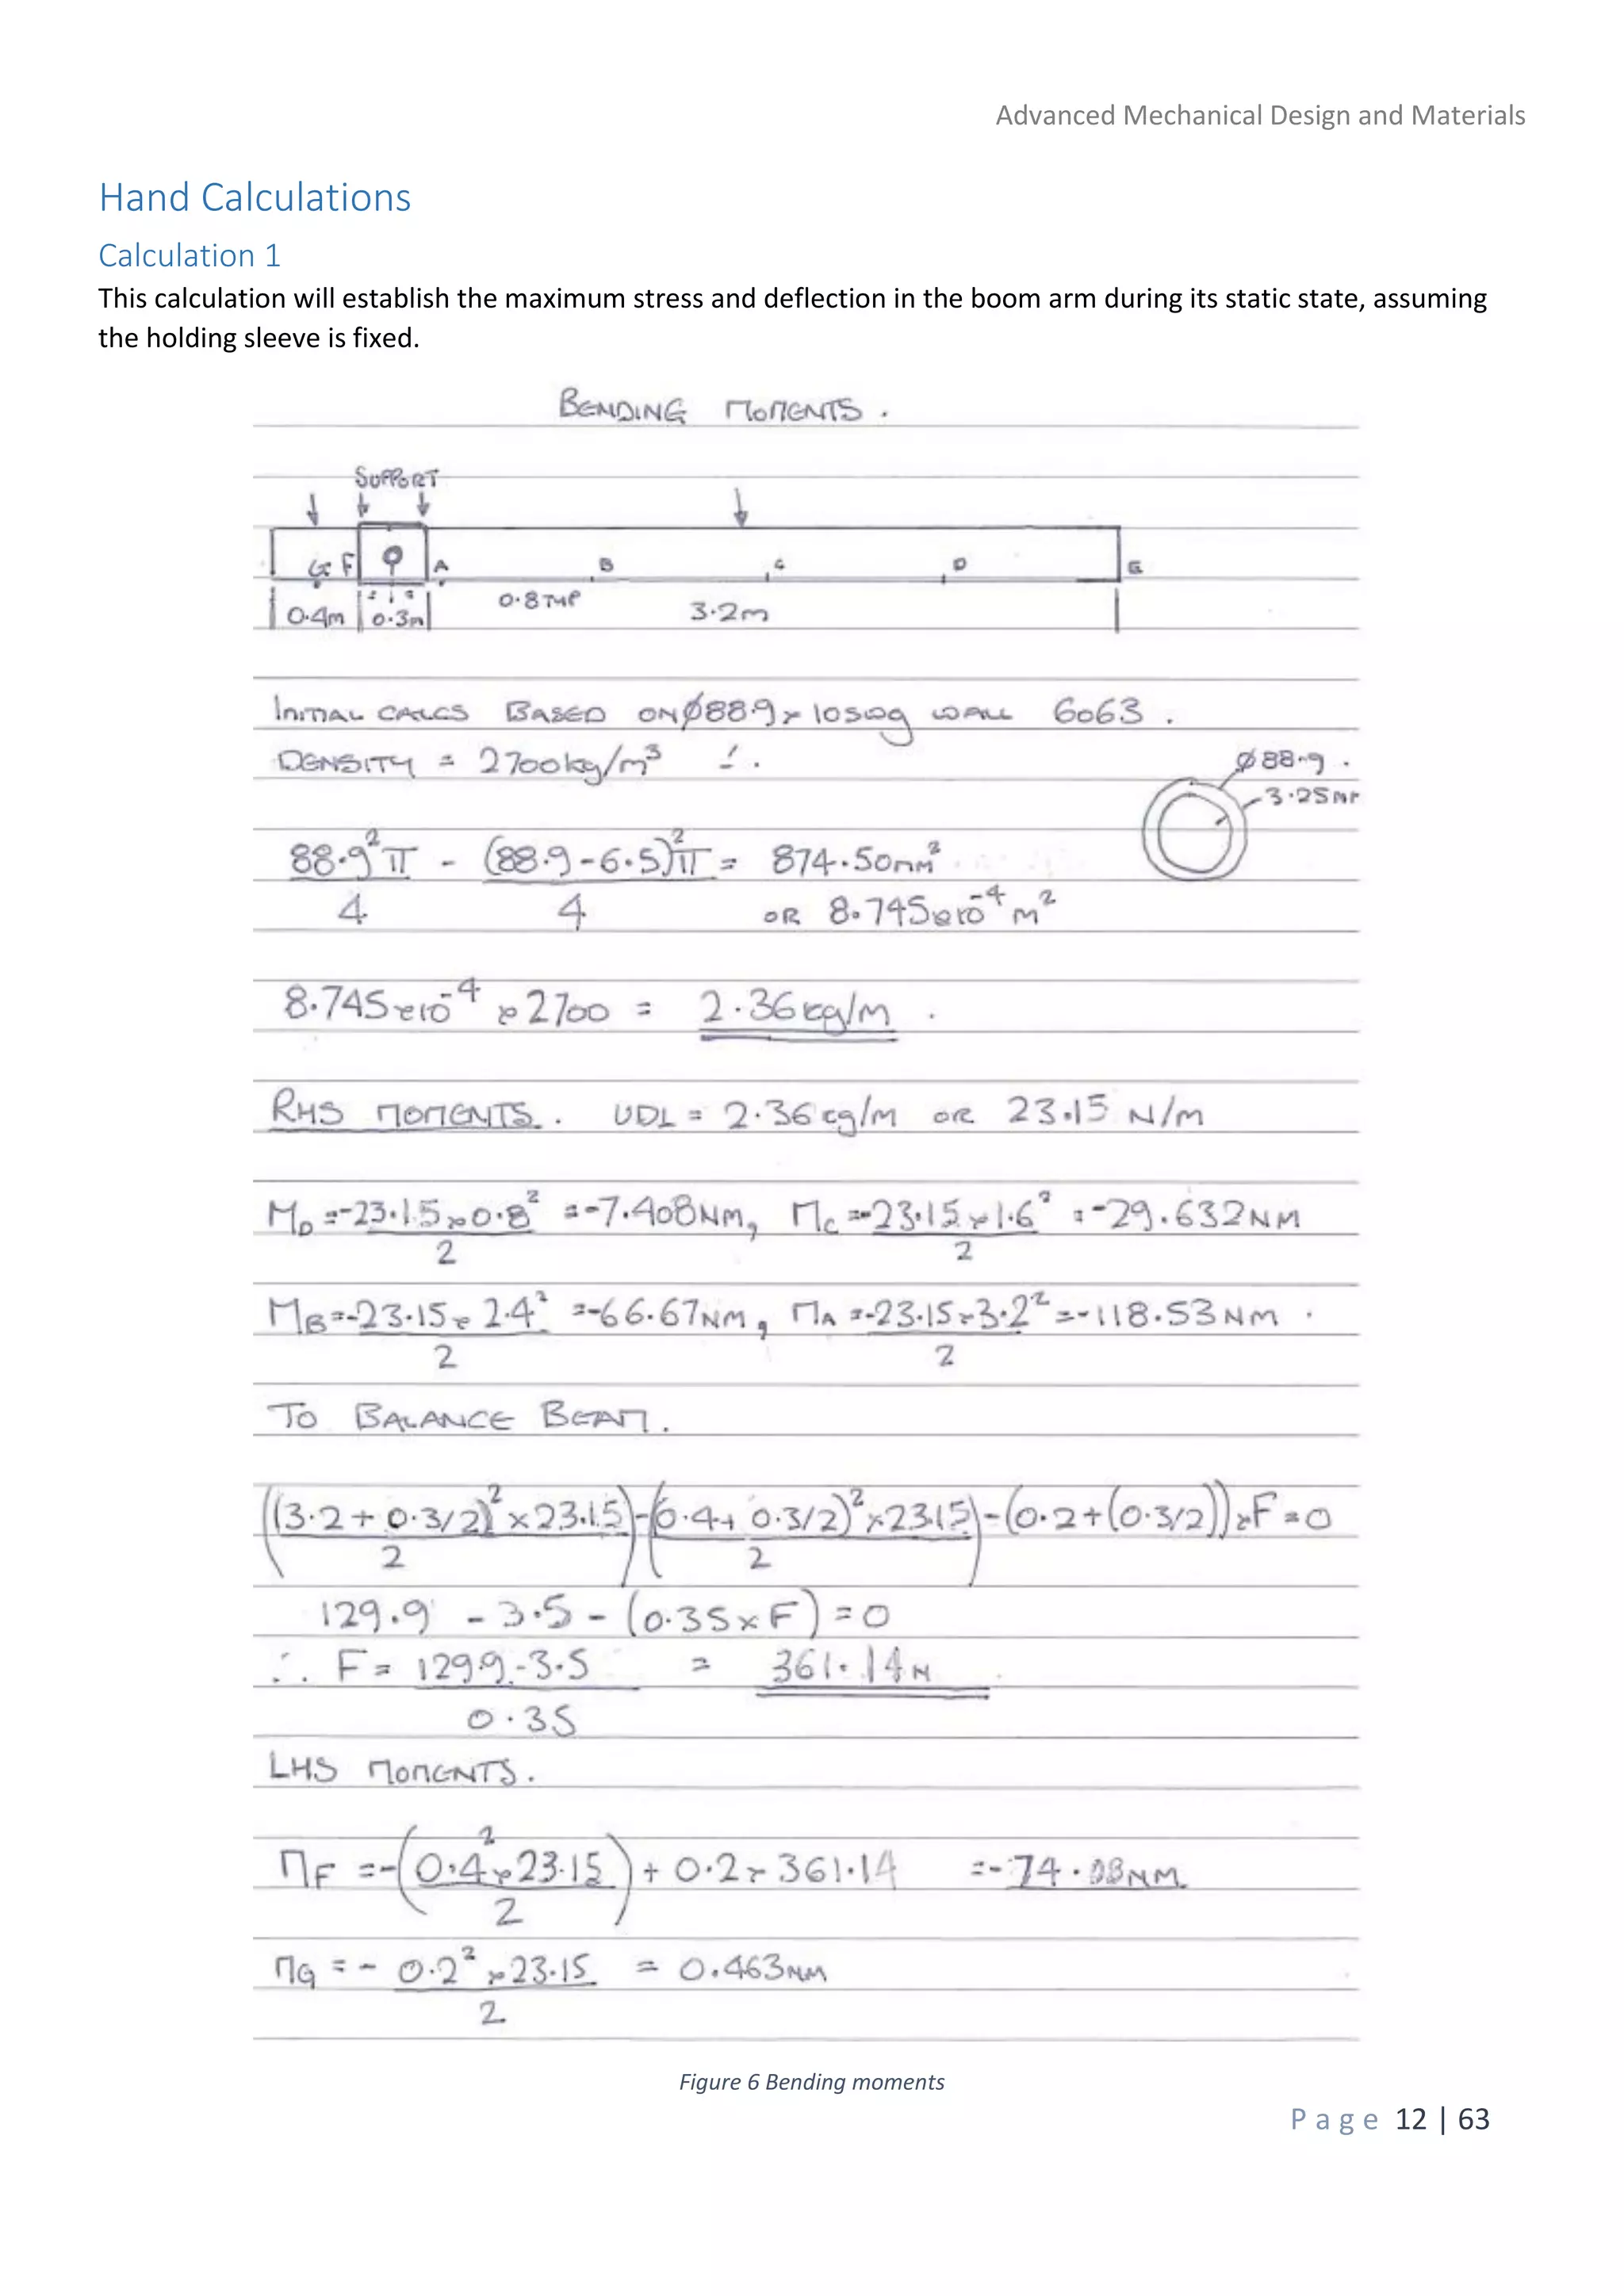 Advanced Mechanical Design and Materials
Hand Calculations
Calculation 1
This calculation will establish the maximum stress and deflection in the boom arm during its static state, assuming
the holding sleeve is fixed.
BENDING MOMENTS.
SUPPORT
G F A B C D E
0.4m 0.3m 0.8 TYP 3.2m
INITIAL CALCS BASED ON Ø88.9 x 10swg WALL 6063.
DENSITY = 2700kg/m³ ∴
Ø88.9.
3.25mm
88.9²π/4 - (88.9-6.5)²π/4 = 874.50mm²
OR 8.745x10⁻⁴ m²
8.745x10⁻⁴ x 2700 = 2.36kg/m.
RHS MOMENTS. UDL = 2.36kg/m OR 23.15 N/m
M_D = -23.15x0.8²/2 = -7.408NM, M_C = -23.15x1.6²/2 = -29.632NM
M_B = -23.15x2.4²/2 = -66.67NM, M_A = -23.15x3.2²/2 = -118.53NM.
TO BALANCE BEAM.
((3.2+0.3/2)²x23.15/2) - (0.4+0.3/2)²x23.15/2) - (0.2+(0.3/2))xF = 0
129.9 - 3.5 - (0.35xF) = 0
∴ F = 129.9-3.5/0.35 = 361.14N
LHS MOMENTS.
M_F = -(0.4²x23.15/2) + 0.2x361.14 = -74.08NM
M_G = - 0.2²x23.15/2 = 0.463NM
Figure 6 Bending moments
Page 12 | 63